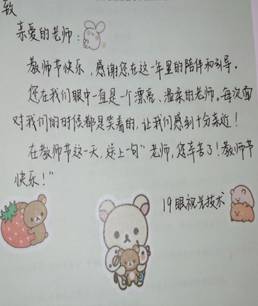 致
亲爱的老师：
教师节快乐，感谢您在这一年里的陪伴和引导。
您在我们眼中一直是个漂亮、温柔的老师。每次面
对我们的时候都是笑着的，让我们感到十分亲近！
在教师节这一天，送上一句“老师，您辛苦了！教师节
快乐！”
19眼视光技术